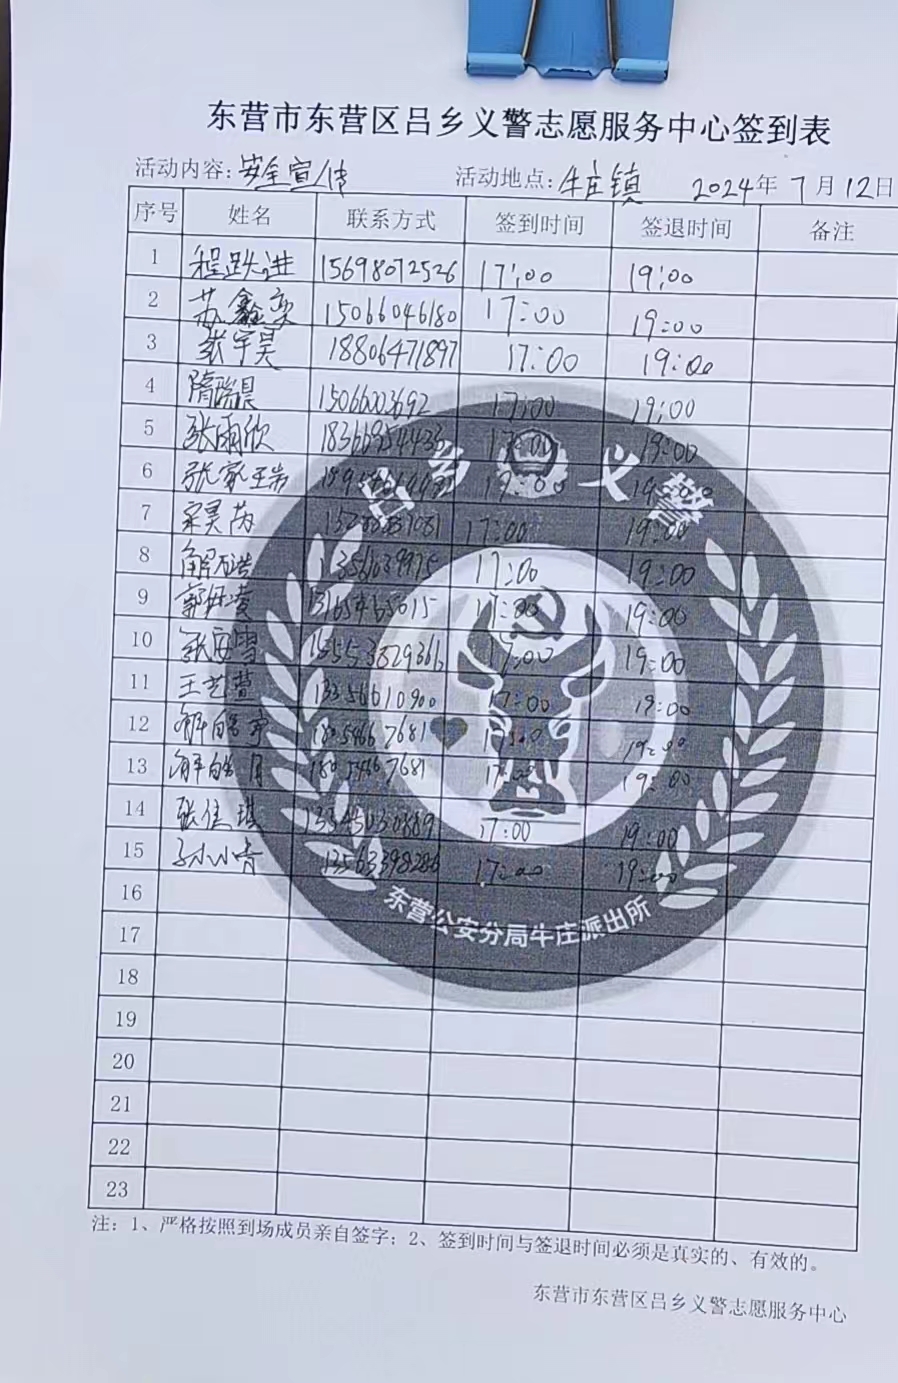 东营市东营区吕乡义警志愿服务中心签到表
活动内容:安全宣传 活动地点:牛庄镇 2024年7月12日
序号 姓名 联系方式 签到时间 签退时间 备注
1 程跃进 15698072526 17:00 19:00
2 苏鑫奕 15066046180 17:00 19:00
3 张宇昊 18806471897 17:00 19:00
4 隋瑞晨 15066003692 17:00 19:00
5 张雨欣 17:00 19:00
6 19:00
7 17:00 19:00
8 17:00 19:00
9 17:00 19:00
10 15553829366 17:00 19:00
11 王艺萱 13356610900 17:00 19:00
12 18054667681 17:00 19:00
13 18054667681 17:00 19:00
14 张佳琪 17:00 19:00
15 13563398286 17:00 19:00
16
17
18
19
20
21
22
23
吕乡义警
东营公安分局牛庄派出所
注:1、严格按照到场成员亲自签字;2、签到时间与签退时间必须是真实的、有效的。
东营市东营区吕乡义警志愿服务中心